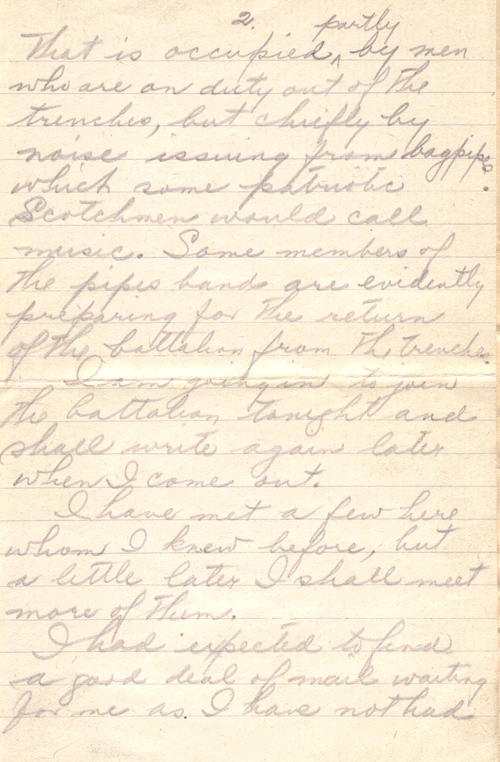 2.
partly
That is occupied ^ by men
who are on duty out of the
trenches, but chiefly by
noise issuing from bagpipes
which some patriotic
Scotchmen would call
music. Some members of
the pipes band are evidently
preparing for the return
of the battalion from th trenches.
I am going in to join
the battalion tonight and
shall write again later
when I come out.
I have met a few here
whom I knew before, but
a little later I shall meet
more of them.
I had expected to find
a good deal of mail waiting
for me as I have not had